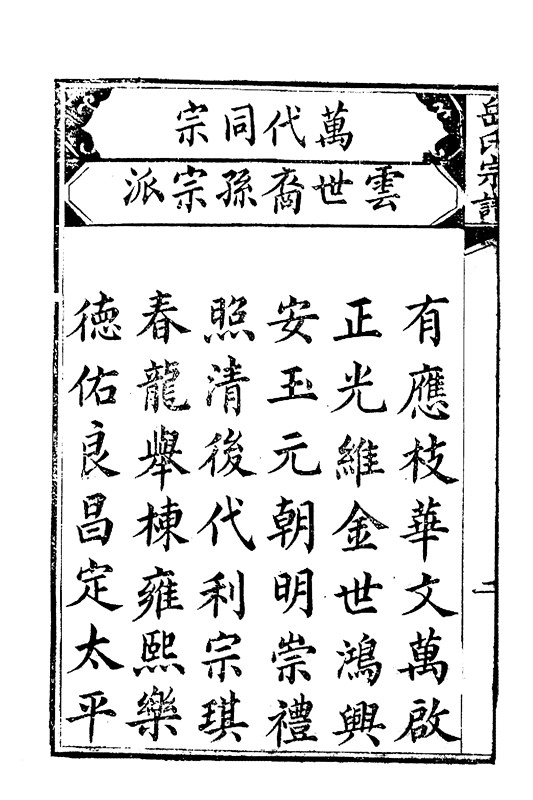 岳氏宗譜
二
萬代同宗
雲世裔孫宗派
有應枝華文萬啟
正光維金世鴻興
安玉元朝明崇禮
照清後代利宗琪
春龍舉棟雍熙樂
德佑良昌定太平